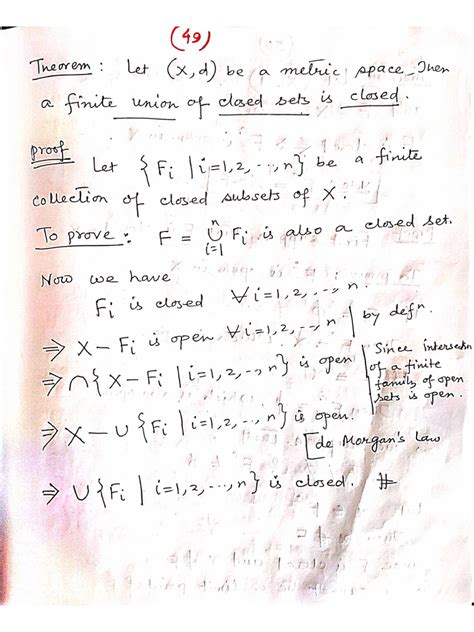 (49)
Theorem : Let (X, d) be a metric space. Then
a finite union of closed sets is closed.
Proof Let { Fi | i=1,2,--,n} be a finite
collection of closed subsets of X.
To prove : F = ⋃ⁿᵢ₌₁ Fi is also a closed set.
Now we have
Fi is closed ∀ i=1,2,...,n.
⇒ X - Fi is open ∀ i=1,2,--,n | by defⁿ.
⇒ ∩{ X - Fi | i=1,2,--,n} is open | Since intersection
of a finite
family of open
sets is open.
⇒ X - ∪ {Fi | i=1,2,--,n} is open.
[de Morgan's Law
⇒ ∪ {Fi | i=1,2,...,n} is closed. #